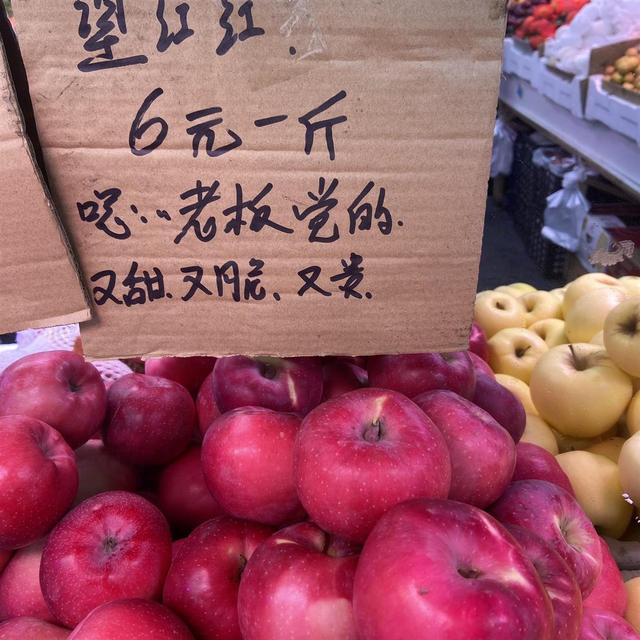 红红.
6元一斤
吃:..老板觉的.
又甜.又脆.又贵.